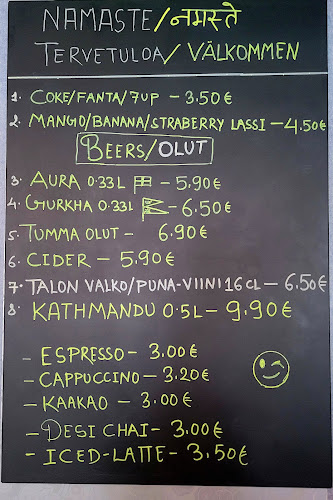 NAMASTE/नमस्ते
TERVETULOA/VÄLKOMMEN
1. COKE/FANTA/7UP - 3.50€
2. MANGO/BANANA/STRABERRY LASSI - 4.50€
BEERS/OLUT
3. AURA 0.33L - 5.90€
4. GURKHA 0.33L - 6.50€
5. TUMMA OLUT - 6.90€
6. CIDER - 5.90€
7. TALON VALKO/PUNA-VIINI 16CL - 6.50€
8. KATHMANDU 0.5L - 9.90€
- ESPRESSO - 3.00€
- CAPPUCCINO - 3.20€
- KAAKAO - 3.00€
- DESI CHAI - 3.00€
- ICED-LATTE - 3.50€